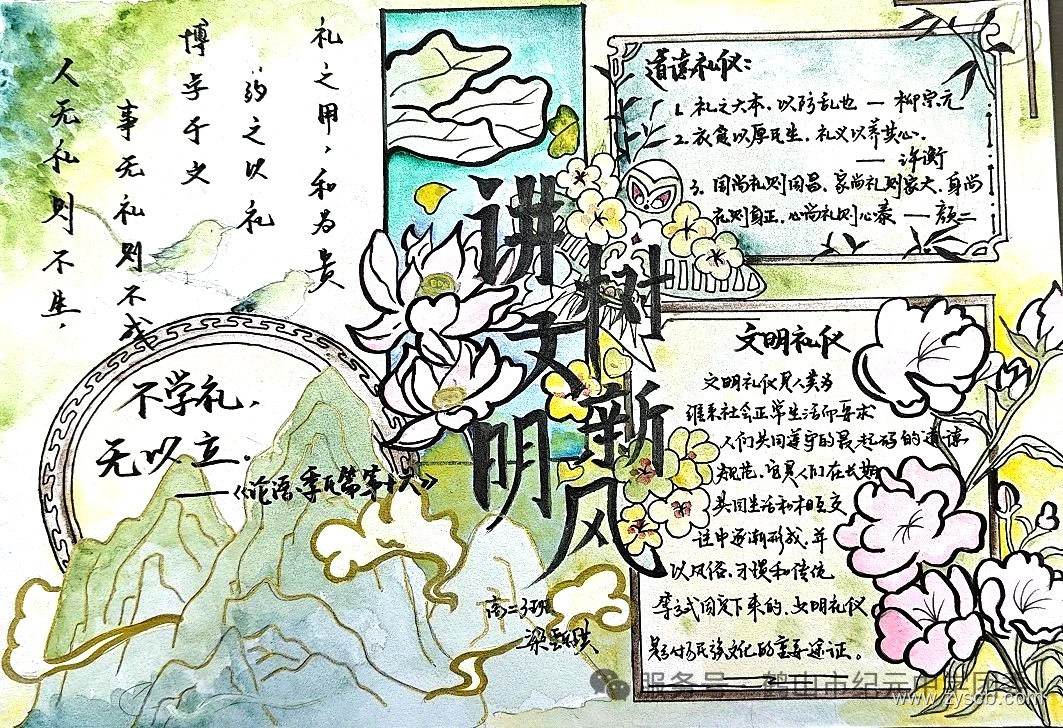 人无礼则不生，
事无礼则不成
博学于文
约之以礼
礼之用，和为贵
不学礼，
无以立．
——《论语·季氏篇第十六》
讲文明
树新风
道德礼仪：
1. 礼之大本，以防乱也 — 柳宗元
2. 衣食以厚民生，礼义以养其心．
— 许衡
3. 国尚礼则国昌，家尚礼则家大，身尚
礼则身正，心尚礼则心泰 — 颜元
文明礼仪
文明礼仪是人类为
维系社会正常生活而要求
人们共同遵守的最起码的道德
规范，它是人们在长期
共同生活和相互交
往中逐渐形成，并
以风俗、习惯和传统
等方式固定下来的，文明礼仪
是弘扬民族文化的重要途径。
高二3班
服务号 · 鹤山市纪元中学团
www.zyscb.com